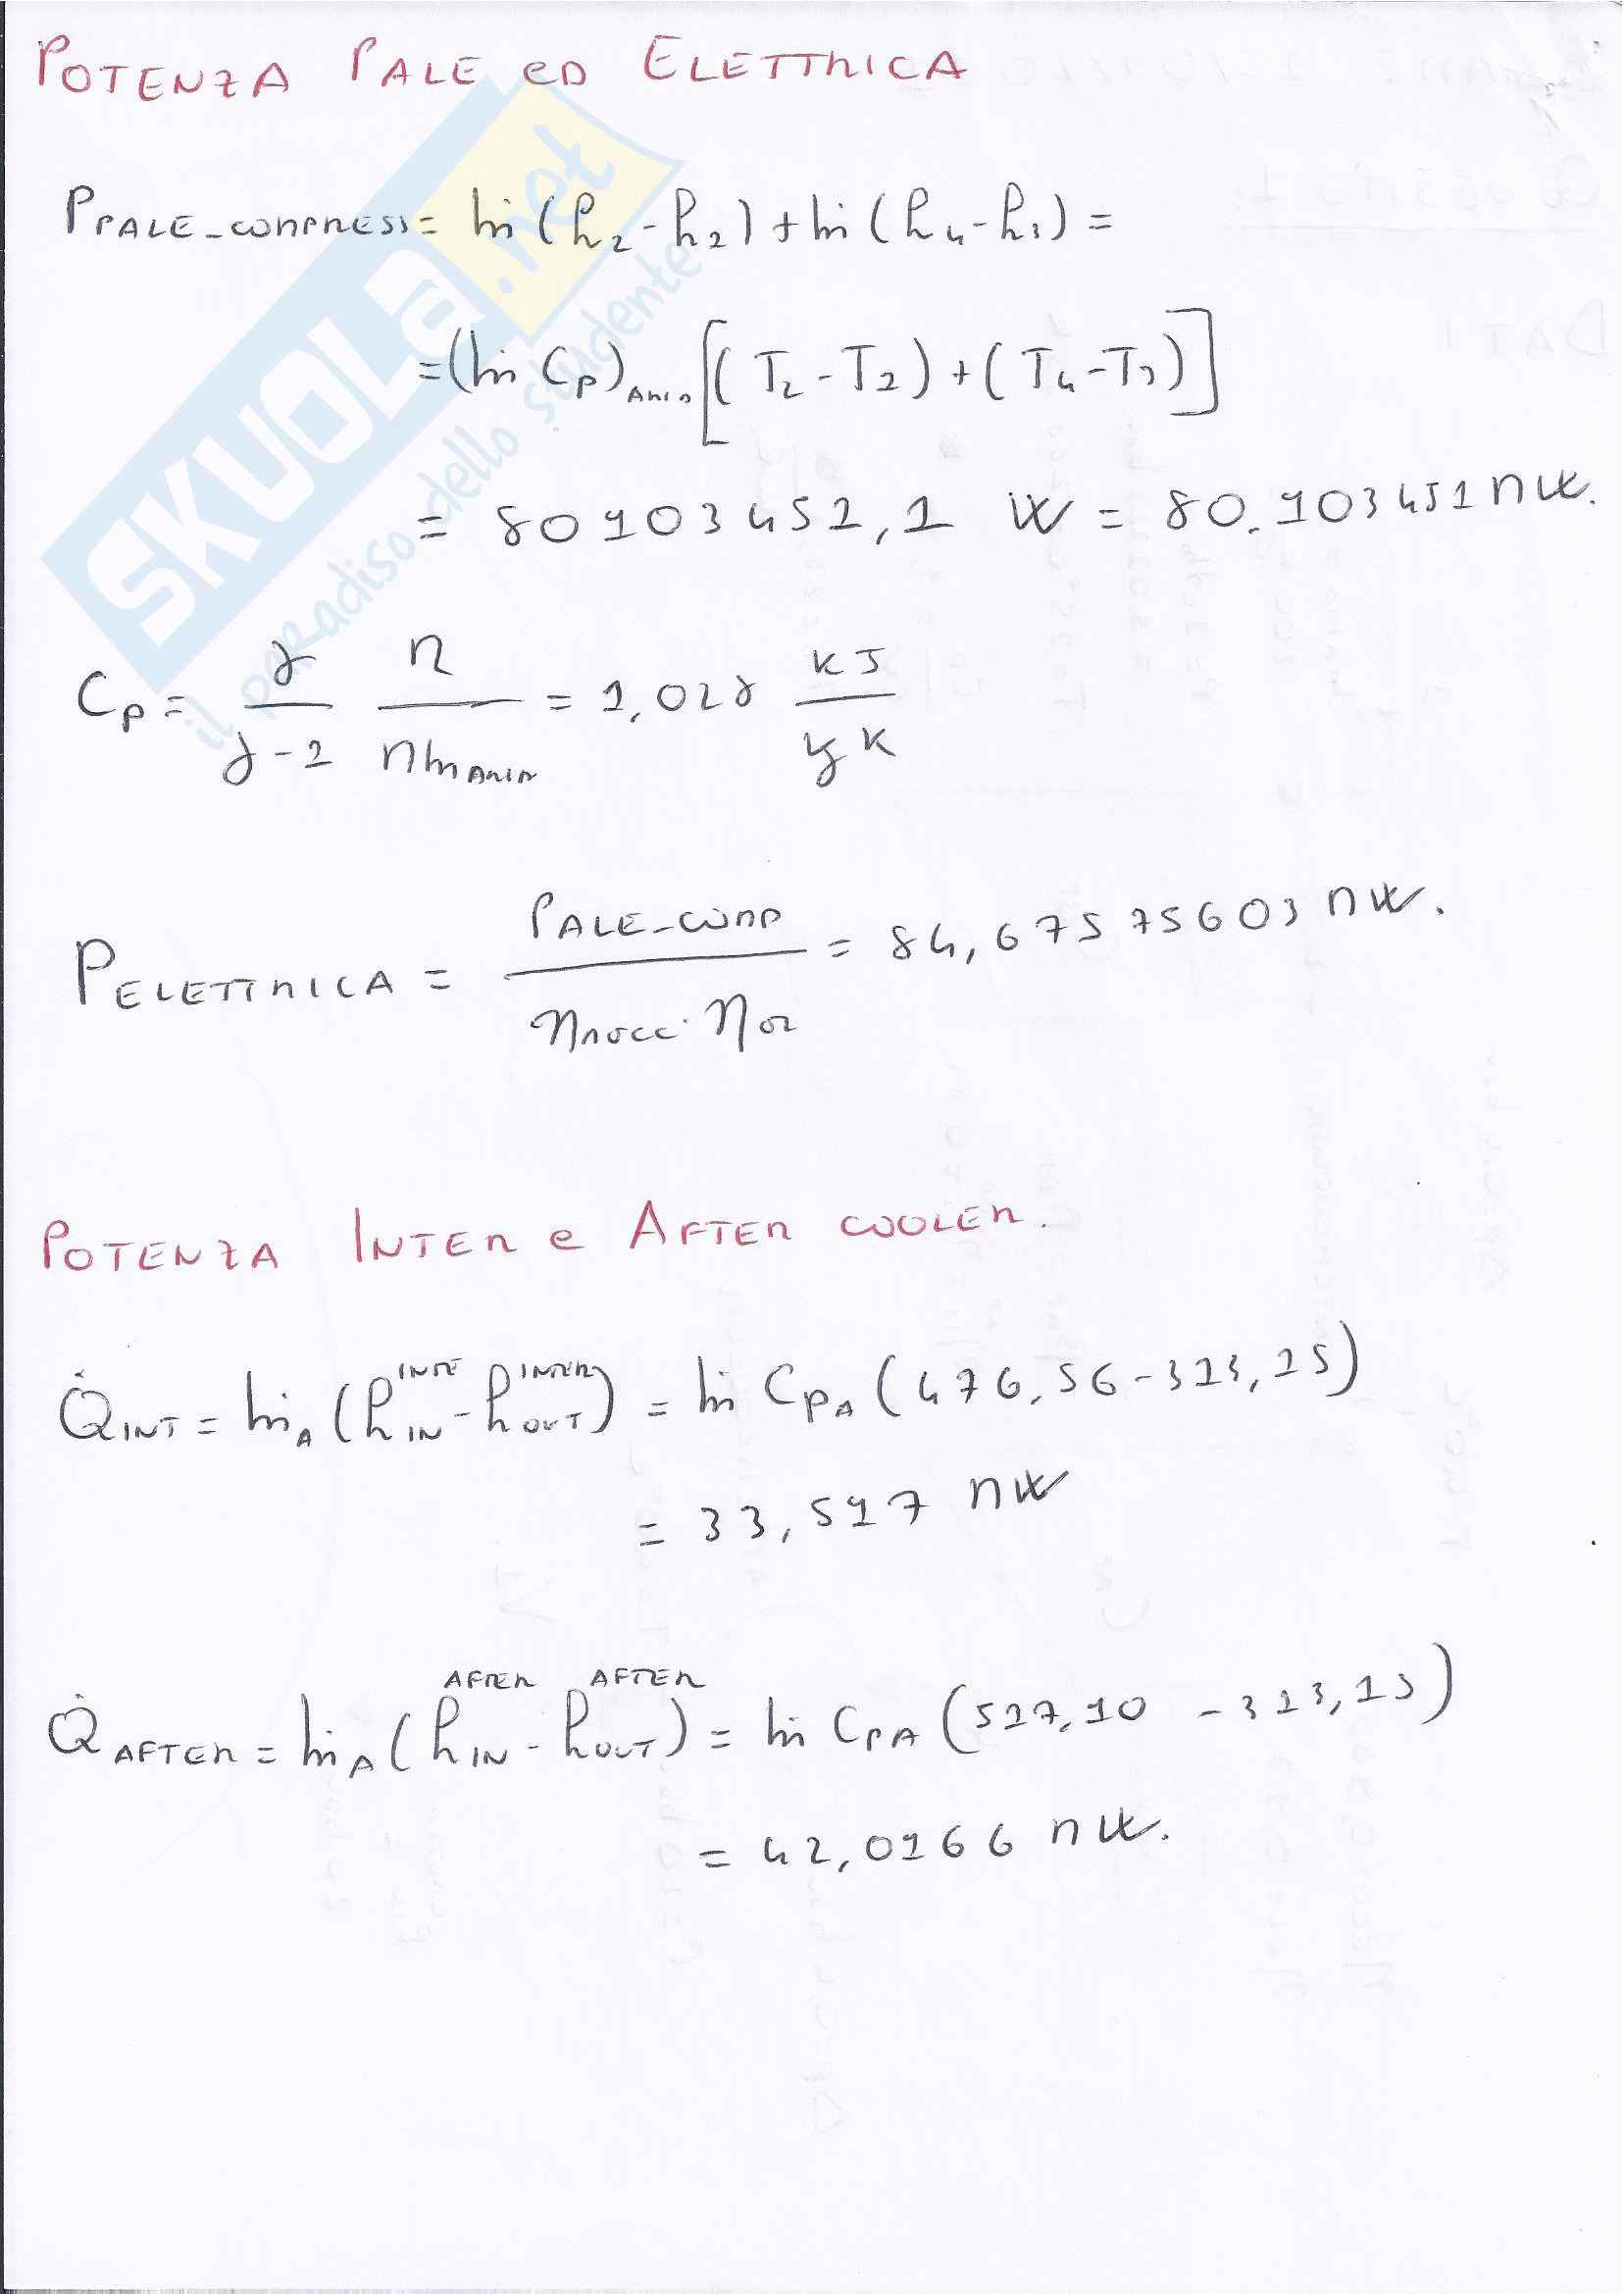 POTENZA PALE ED ELETTRICA
P PALE_COMPRESS = ṁ (h2 - h1) + ṁ (h4 - h3) =
= (ṁ Cp)ARIA [(T2 - T1) + (T4 - T3)]
= 80103452,1 W = 80.103451 MW.
Cp = γ/(γ-1) R/MmARIA = 1,018 kJ/kg K
P ELETTRICA = PALE_COMP / (ηMECC · ηOR) = 84,67575603 MW.
POTENZA INTER e AFTER COOLER.
Q̇INT = ṁA (hIN^INTE - hOUT^INTER) = ṁ CpA (476,56 - 313,15)
= 33,517 MW
Q̇AFTER = ṁA (hIN^AFTER - hOUT^AFTER) = ṁ CpA (517,10 - 313,15)
= 42,0166 MW.
SKUOLA.net
il paradiso dello studente